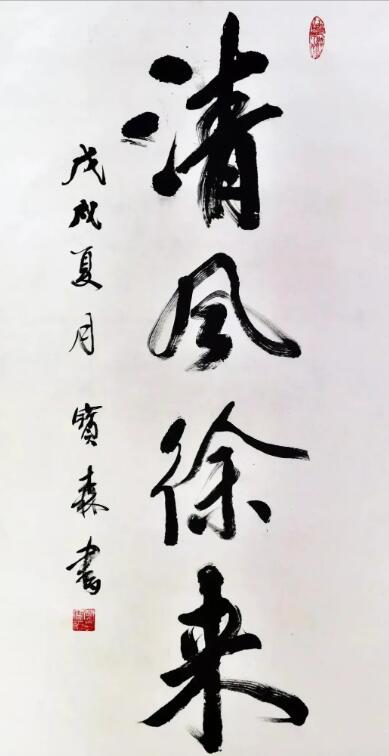 清风徐来
戊戌夏月 寶森書